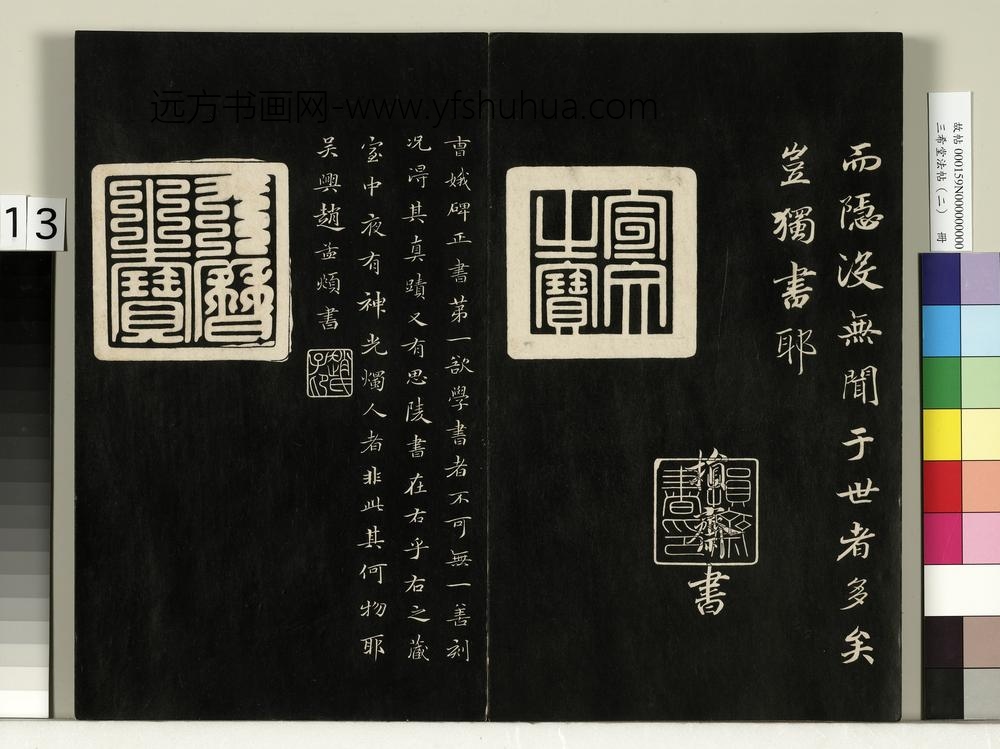 而隱没無聞于世者多矣
豈獨書耶
損齋書
宣文之寶
曹娥碑正書第一欲學書者不可無一善刻
况得其真蹟又有思陵書在右乎右之藏
室中夜有神光燭人者非此其何物耶
吳興趙孟頫書
趙氏子昂
天曆之寶
远方书画网-www.yfshuhua.com
故帖 000159N000000000
三希堂法帖（二） 冊
13